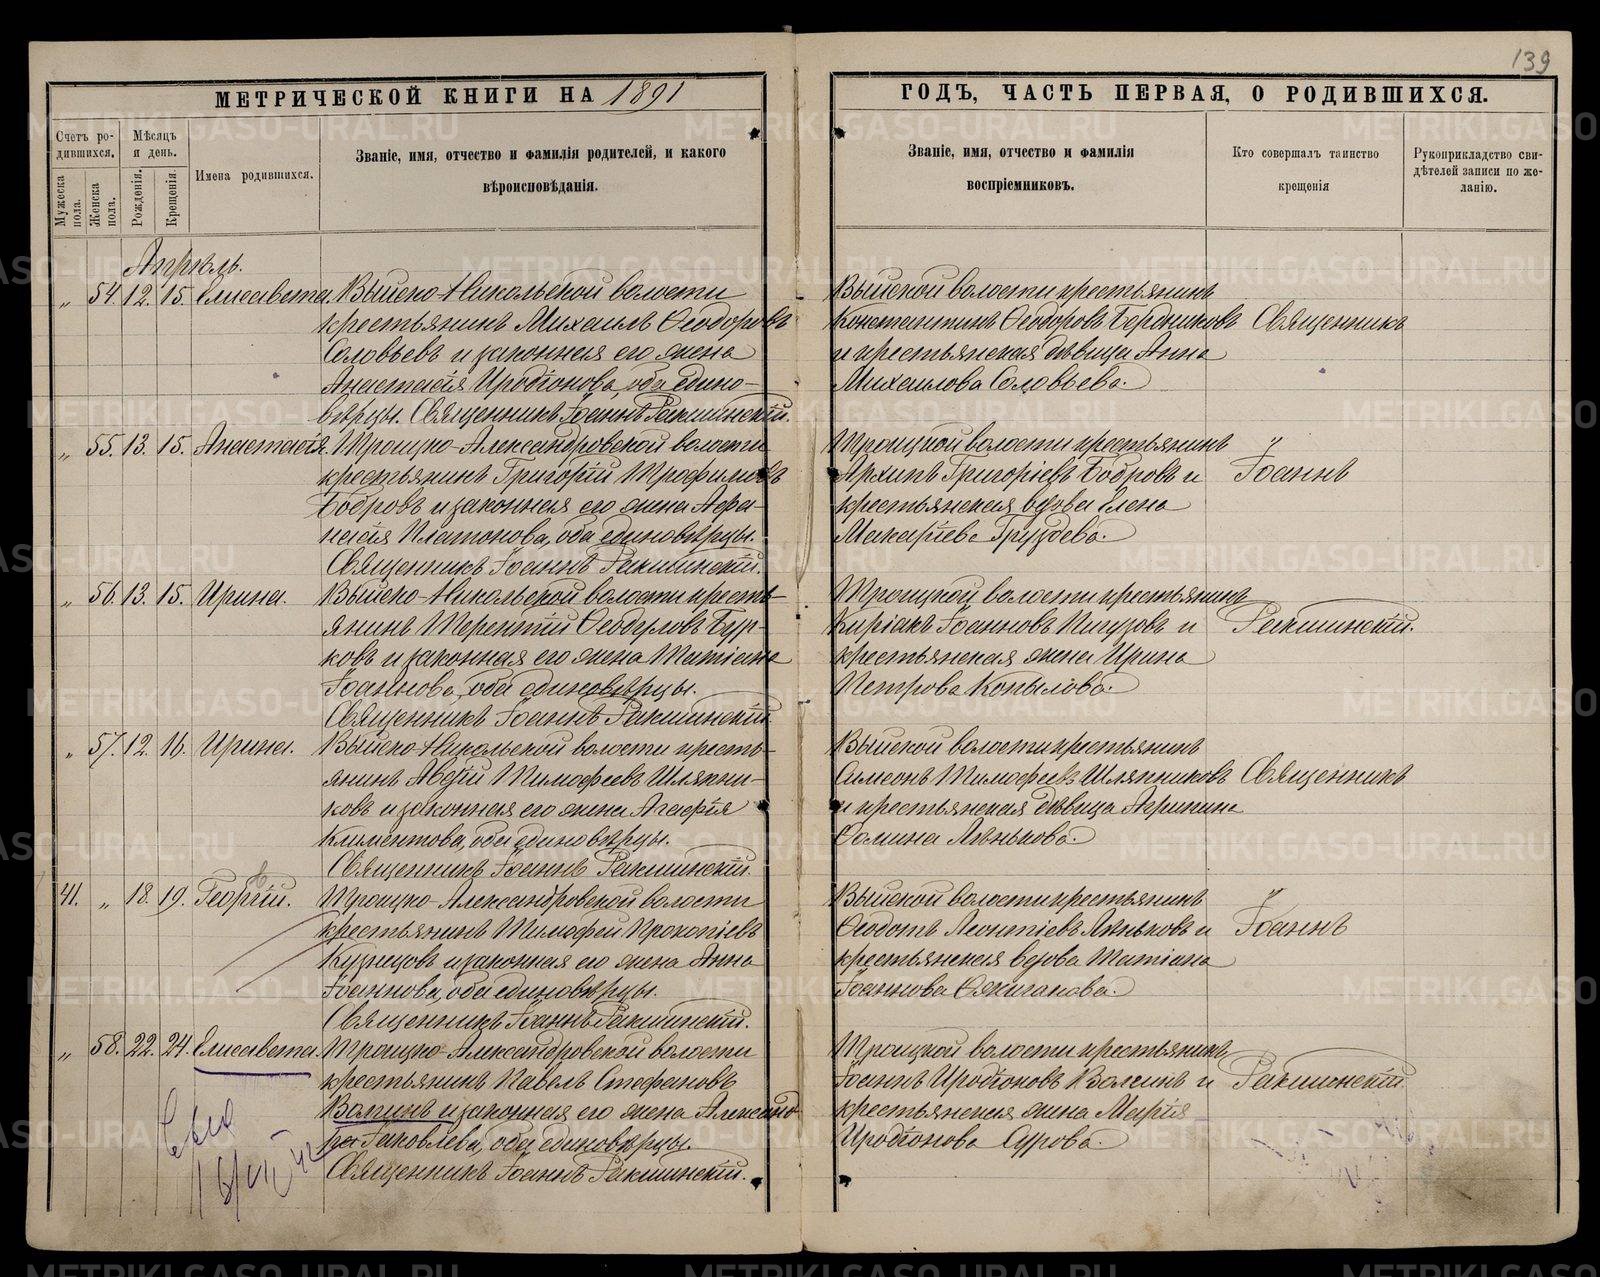 139
МЕТРИЧЕСКОЙ КНИГИ НА 1891
ГОДЪ, ЧАСТЬ ПЕРВАЯ, О РОДИВШИХСЯ.
Счетъ ро-
дившихся.
Мѣсяцъ
и день.
Мужеска
пола.
Женска
пола.
Рожденія.
Крещенія.
Имена родившихся.
Званіе, имя, отчество и фамилія родителей, и какого
вѣроисповѣданія.
Званіе, имя, отчество и фамилія
воспріемниковъ.
Кто совершалъ таинство
крещенія
Рукоприкладство сви-
дѣтелей записи по же-
ланію.
Апрѣль.
„ 54. 12. 15. Елисавета. Выйско-Никольской волости
крестьянинъ Михаилъ Ѳеодоровъ
Соловьевъ и законная его жена
Анастасія Иродіонова, оба едино-
вѣрцы. Священникъ Іоаннъ Ракшинскій.
Выйской волости крестьянинъ
Константинъ Ѳеодоровъ Бердниковъ
и крестьянская дѣвица Анна
Михаилова Соловьева.
Священникъ
„ 55. 13. 15. Анастасія. Троицко-Александровской волости
крестьянинъ Григорій Трофимовъ
Бобровъ и законная его жена Афа-
насія Платонова, оба единовѣрцы.
Священникъ Іоаннъ Ракшинскій.
Троицкой волости крестьянинъ
Архипъ Григоріевъ Бобровъ и
крестьянская вдова Елена
Макаріева Груздева.
Іоаннъ
„ 56. 13. 15. Ирина. Выйско-Никольской волости кресть-
янинъ Терентій Ѳеодуловъ Бур-
ковъ и законная его жена Татіана
Іоаннова, оба единовѣрцы.
Священникъ Іоаннъ Ракшинскій
Троицкой волости крестьянинъ
Киріакъ Іоанновъ Пигузовъ и
крестьянская жена Ирина
Петрова Копылова.
Ракшинскій.
„ 57. 12. 16. Ирина. Выйско-Никольской волости кресть-
янинъ Авдій Тимофеевъ Шляпни-
ковъ и законная его жена Агафія
Климентова, оба единовѣрцы.
Священникъ Іоаннъ Ракшинскій.
Выйской волости крестьянинъ
Симеонъ Тимофеевъ Шляпниковъ
и крестьянская дѣвица
Ѳомина Лянькова.
Священникъ
41. „ 18. 19. Георгій. Троицко-Александровской волости
крестьянинъ Тимофей Прокопіевъ
Кузнецовъ и законная его жена Анна
Іоаннова, оба единовѣрцы.
Священникъ Іоаннъ Ракшинскій.
Выйской волости крестьянинъ
Ѳеодотъ Леонтіевъ Ляньковъ и
крестьянская вдова Татіана
Іоаннова
Іоаннъ
„ 58. 22. 24. Елисавета. Троицко-Александровской волости
крестьянинъ Павелъ Стефановъ
Волгинъ и законная его жена Александ-
ра Іаковлева, оба единовѣрцы.
Священникъ Іоаннъ Ракшинскій.
Троицкой волости крестьянинъ
Іоаннъ Иродіоновъ Волгинъ и
крестьянская жена Марія
Иродіонова Сурова.
Ракшинскій
METRIKI.GASO-URAL.RU